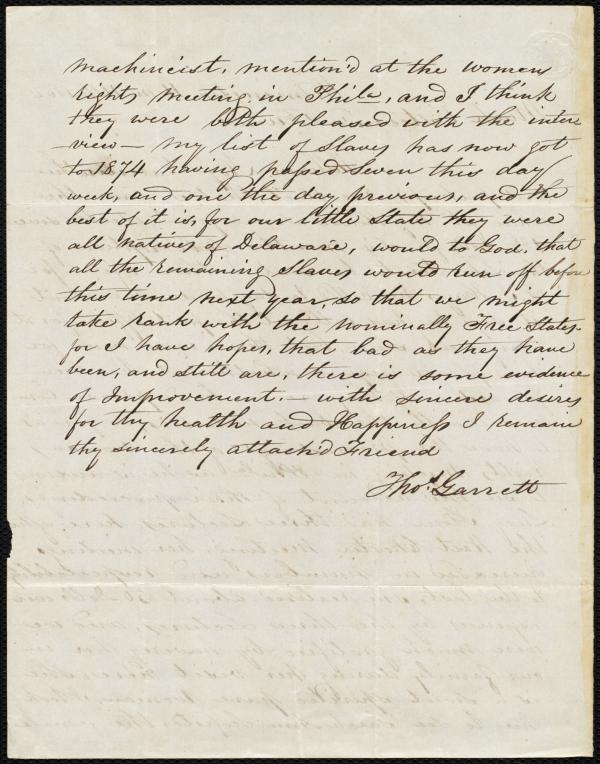 machineist, mention'd at the womens
rights meeting in Phila, and I think
they were both pleased with the inter
-view — my list of Slaves has now got
to 1874 having passed Seven this day
week, and one the day previous, and the
best of it is, for our little State they were
all natives of Delaware, would to God, that
all the remaining Slaves would run off before
this time next year, so that we might
take rank with the nominally Free States.
for I have hopes, that bad as they have
been, and still are, there is some evidence
of Improvement. — with sincere desires
for thy health and Happiness I remain
thy sincerely attach'd Friend
Thos. Garrett